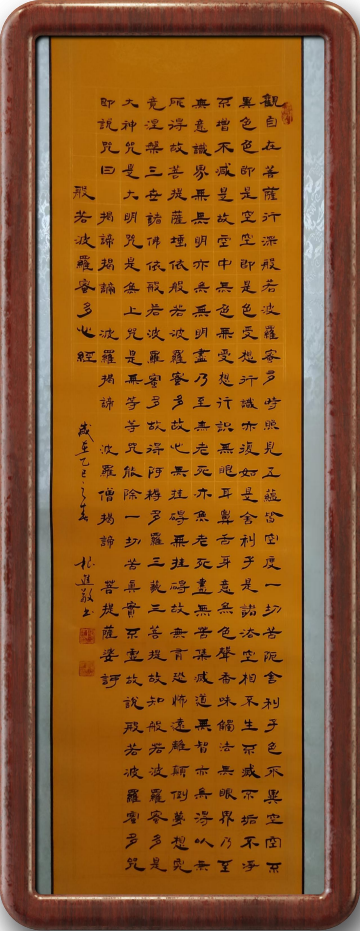 觀自在菩薩行深般若波羅蜜多時照見五蘊皆空度一切苦厄舍利子色不異空空不
異色色即是空空即是色受想行識亦復如是舍利子是諸法空相不生不滅不垢不淨
不增不減是故空中無色無受想行識無眼耳鼻舌身意無色聲香味觸法無眼界乃至
無意識界無無明亦無無明盡乃至無老死亦無老死盡無苦集滅道無智亦無得以無
所得故菩提薩埵依般若波羅蜜多故心無挂礙無挂礙故無有恐怖遠離顛倒夢想究
竟涅槃三世諸佛依般若波羅蜜多故得阿耨多羅三藐三菩提故知般若波羅蜜多是
大神咒是大明咒是無上咒是無等等咒能除一切苦真實不虛故說般若波羅蜜多咒
即說咒曰 揭諦揭諦 波羅揭諦 波羅僧揭諦 菩提薩婆訶
般若波羅蜜多心經
歲在乙巳之春 敬書